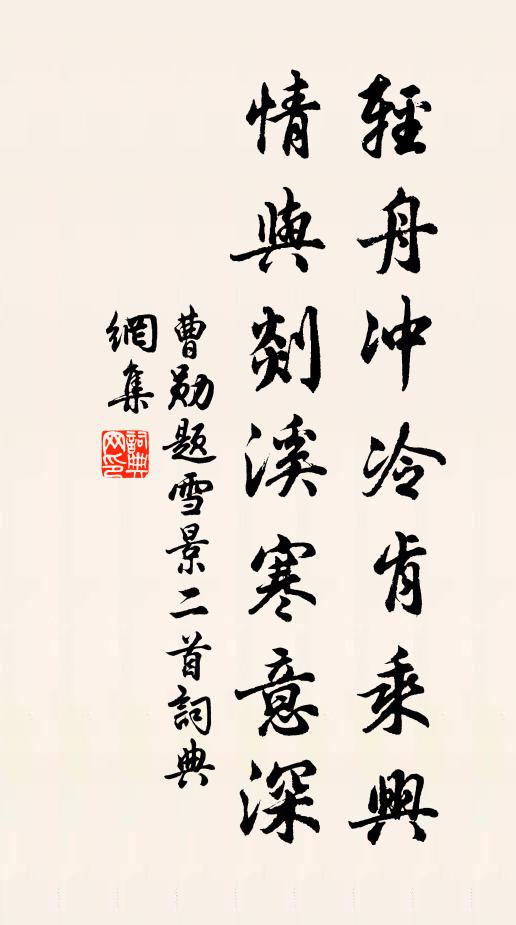 輕舟冲冷肯乘興
情與剡溪寒意深
曹勛題雪景二首詞典
網集
詞典网印